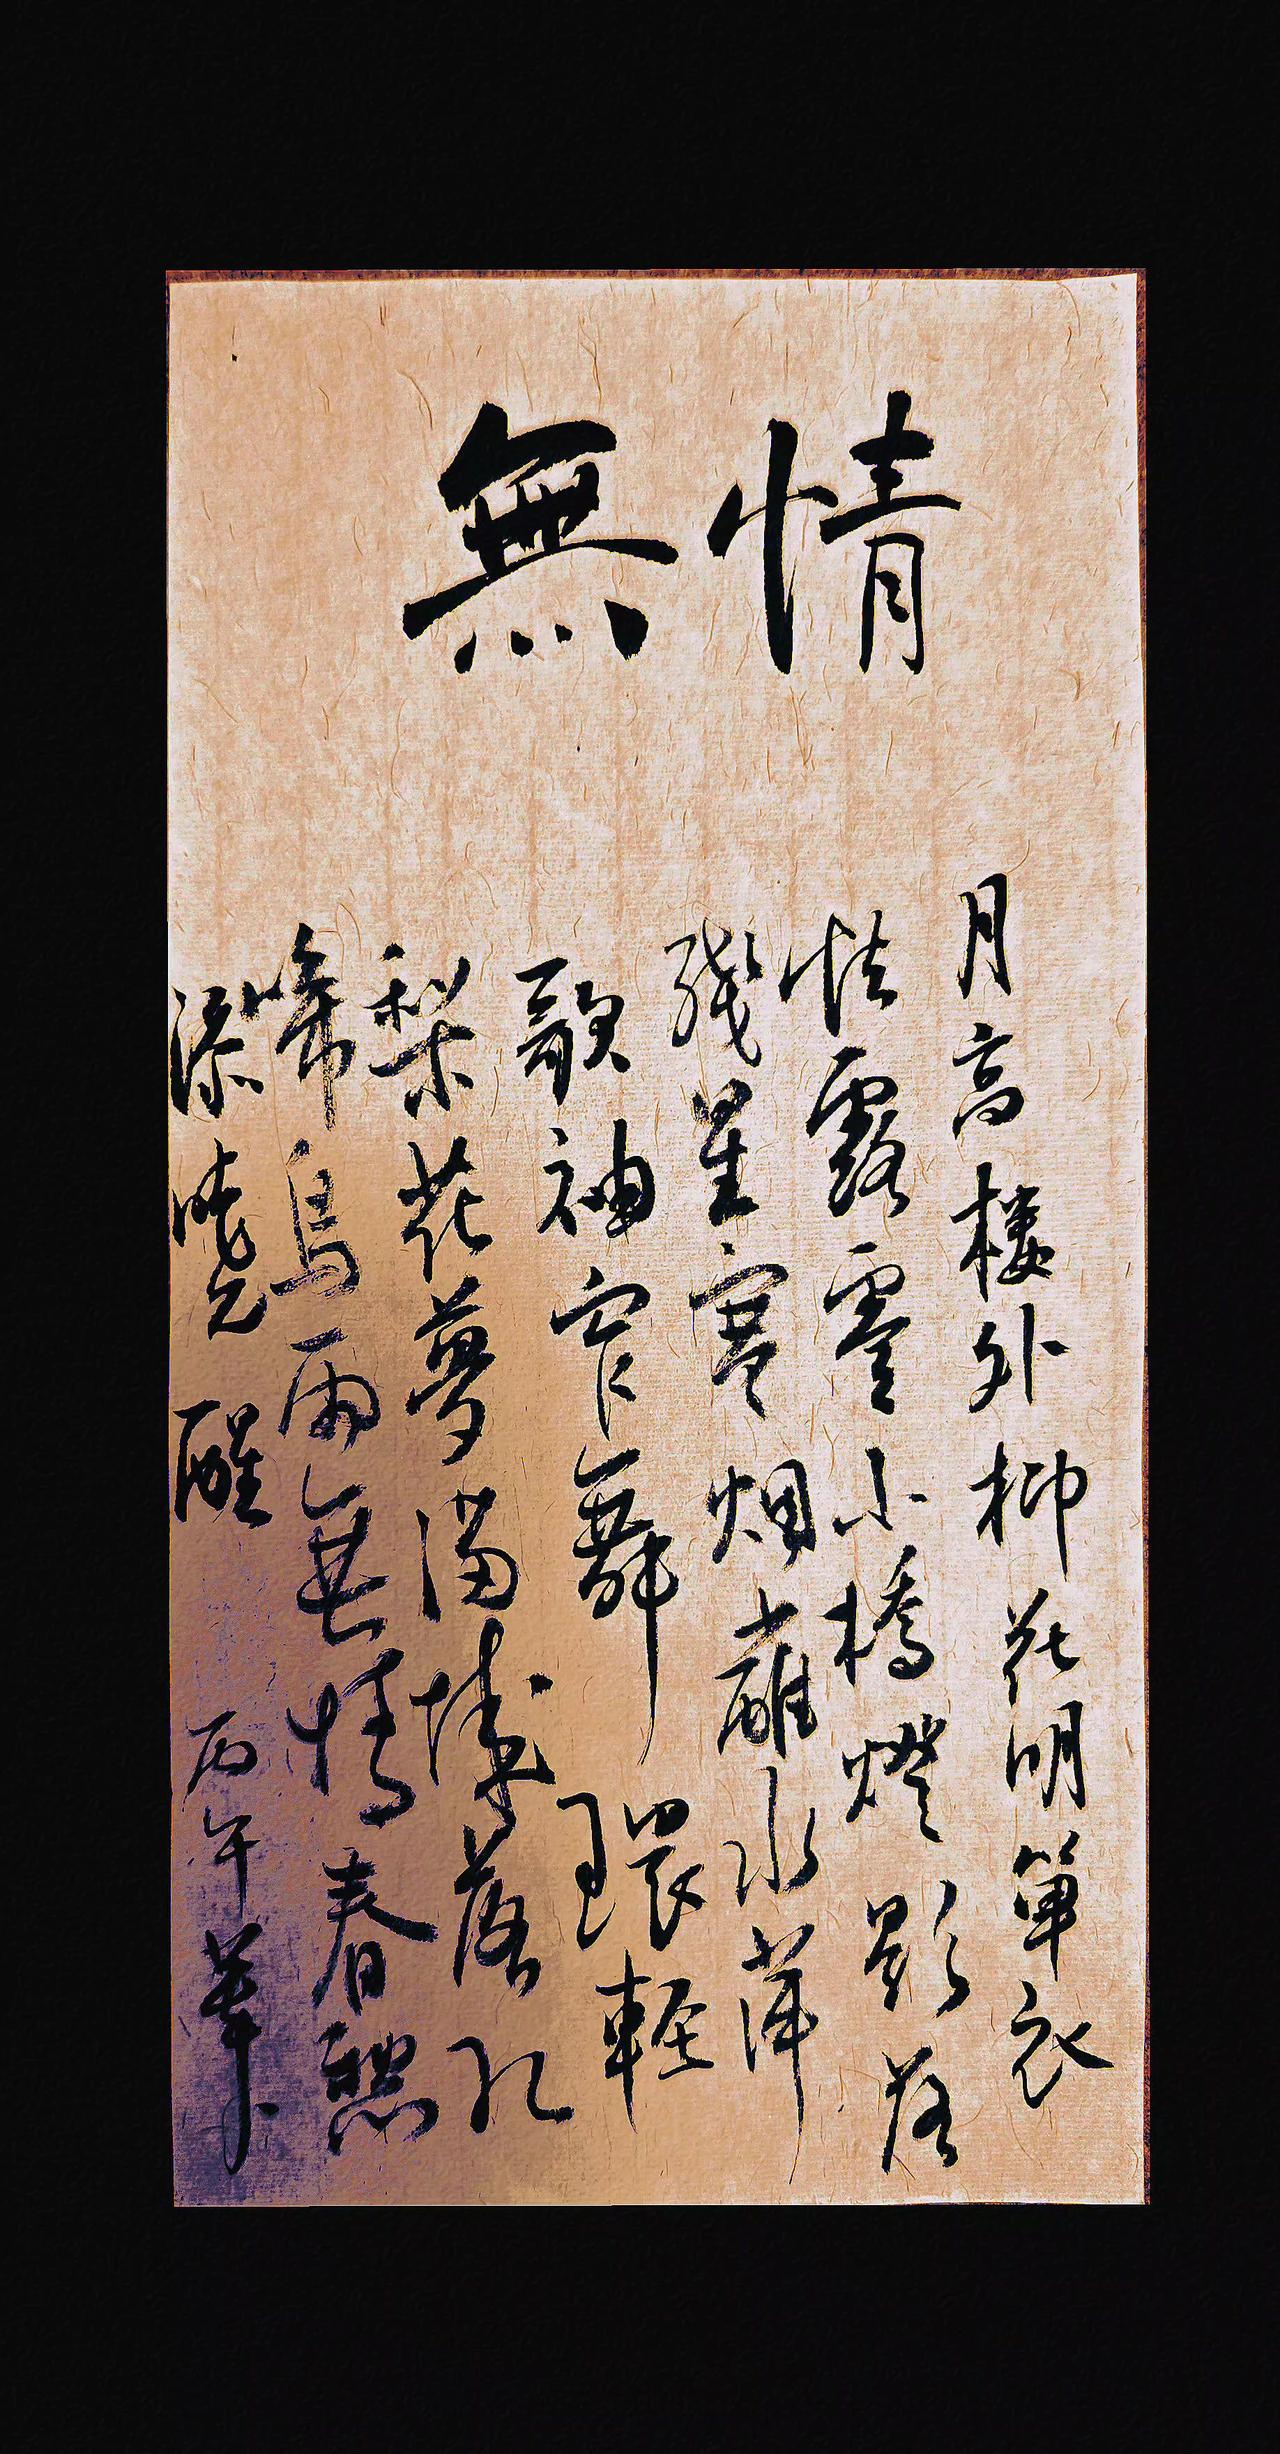 無情
月高樓外柳花明單衣
怯露零小橋燈影落
殘星寒烟蘸水萍
歌袖窄舞環輕
梨花夢滿城落紅
啼鳥兩無情春愁
添曉醒 丙午筆